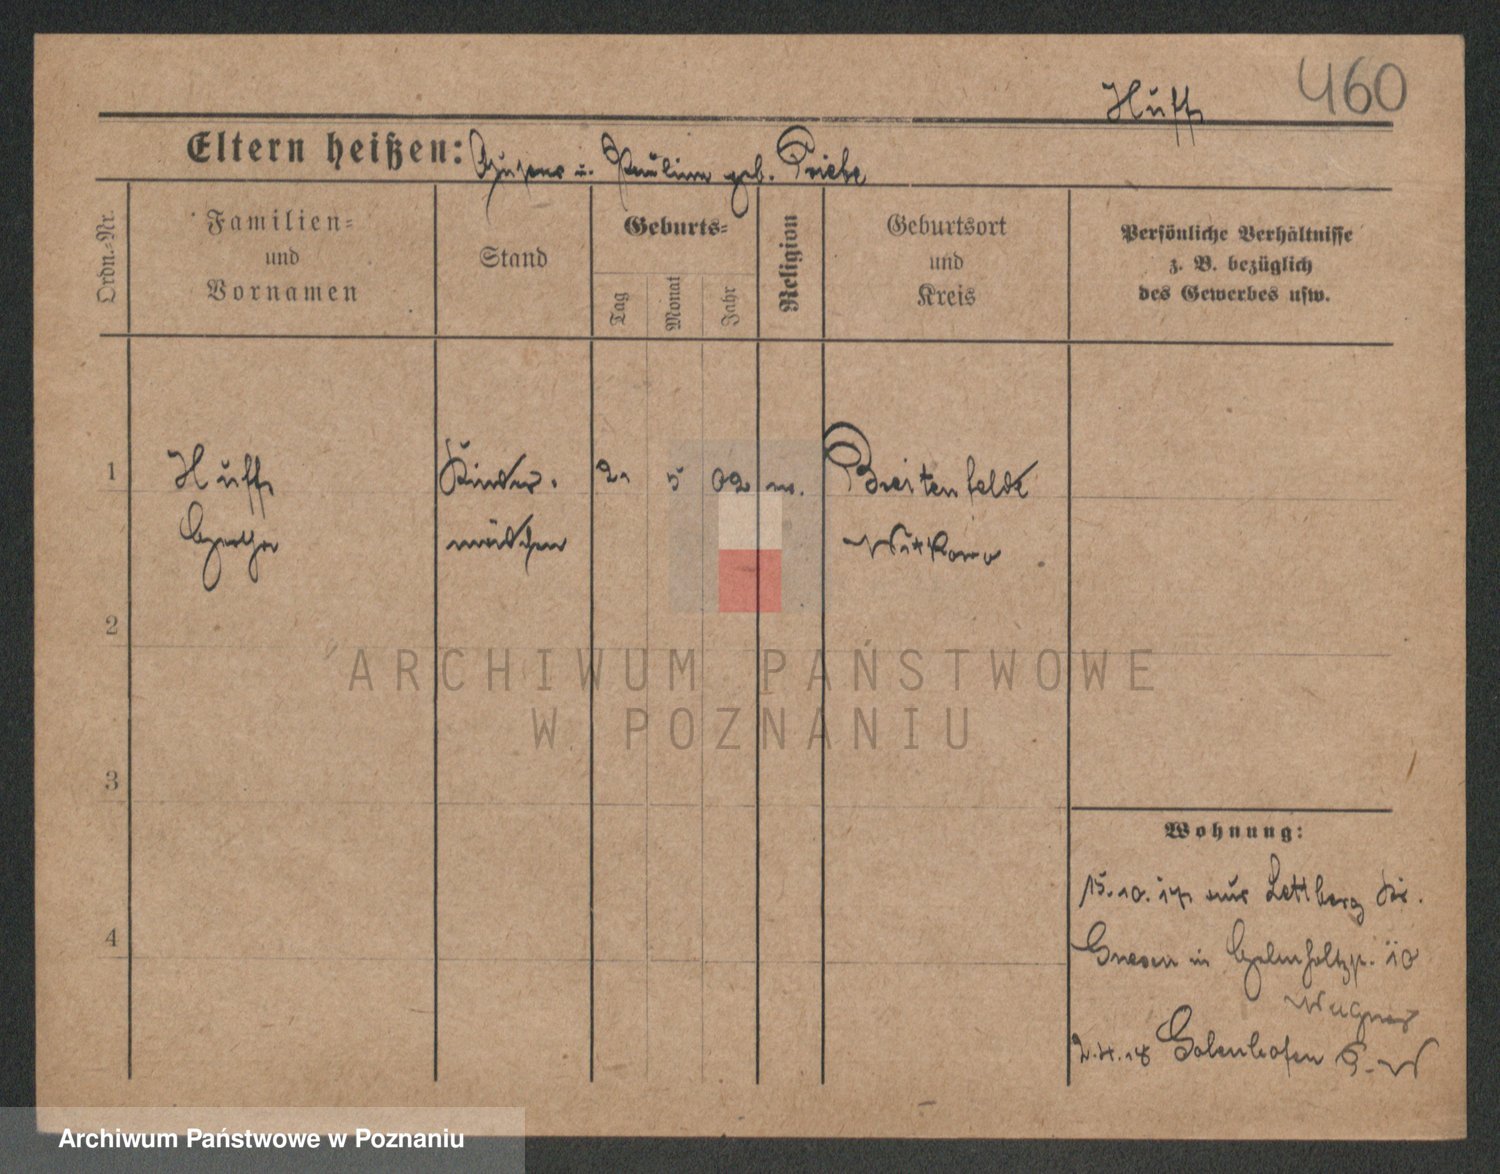 460
Huff
Eltern heißen: u. Pauline geb. Priebe
Ordn.-Nr.
Familien-
und
Vornamen
Stand
Geburts-
Tag
Monat
Jahr
Religion
Geburtsort
und
Kreis
Persönliche Verhältnisse
z. B. bezüglich
des Gewerbes usw.
1
Huff
Kinder-
2. 5 02
Breitenfelde
mädchen
Witkowo
2
ARCHIWUM PAŃSTWOWE
W POZNANIU
3
Wohnung:
15.10.17 aus Lettberg Kr.
4
Gnesen in 10
Wagner
2.4.18 Golenhofen P.-W
Archiwum Państwowe w Poznaniu